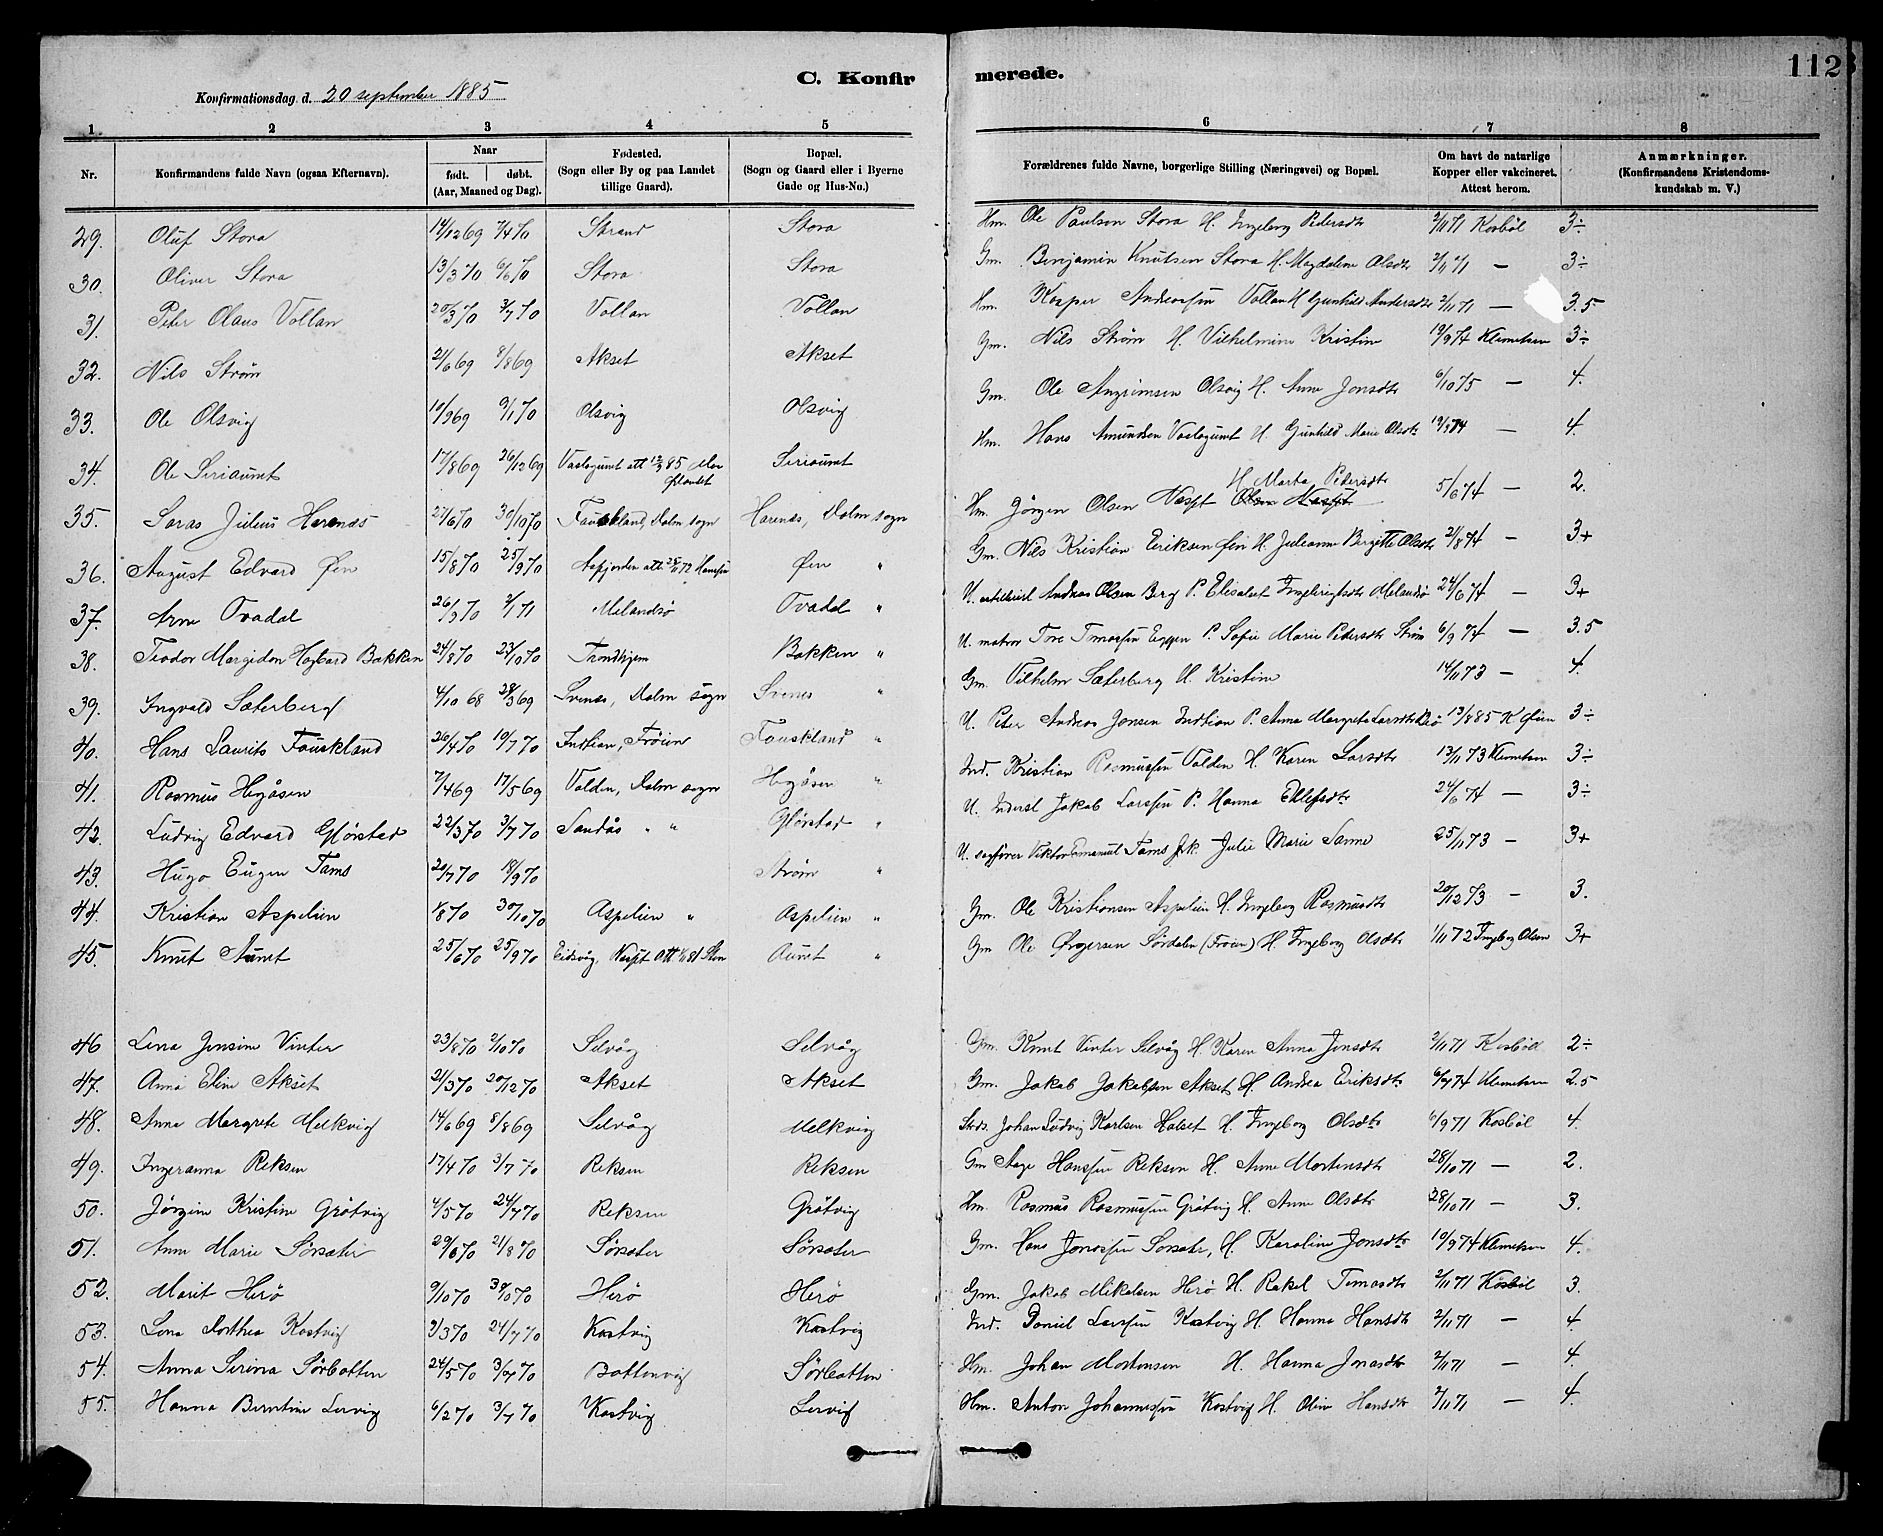 112
C. Konfirmerede.
Konfirmationsdag d. 20 september 1885
1 2 3 4 5 6 7 8
Nr. Konfirmandens fulde Navn (ogsaa Efternavn). Naar født. døbt. (Aar, Maaned og Dag). Fødested. (Sogn eller By og paa Landet tillige Gaard). Bopæl. (Sogn og Gaard eller i Byerne Gade og Hus-No.) Forældrenes fulde Navne, borgerlige Stilling (Næringsvei) og Bopæl. Om havt de naturlige Kopper eller vakcineret. Attest herom. Anmærkninger. (Konfirmandens Kristendomskundskab m. V.)
29. Oluf Stora 14/12 69 7/4 70 Strand Stora Hm. Ole Paulsen Stora H. Ingeborg Pedersdtr 2/11 71 Kosbøl 3÷
30. Oliver Stora 13/3 70 6/6 70 Stora Stora Gm. Benjamin Knutsen Stora H. Magdalene Olsdtr 2/11 71 — 3÷
31. Peter Olaus Vollan 20/3 70 3/7 70 Vollan Vollan Hm. Kasper Andreassen Vollan H Gunhild Andersdtr 2/11 71 — 3.5
32. Nils Strøm 21/6 69 8/8 69 Akset Akset Gm. Nils Strøm H. Vilhelmine Kristine 19/9 74 Klemetsen 3÷
33. Ole Olsvig 10/9 69 9/1 70 Olsvig Olsvig Gm. Ole Angrimsen Olsvig H. Anne Jonsdtr 6/10 75 — 4.
34. Ole Seriaunet 17/8 69 26/12 69 Vaslagunet att 12/3 85 Seriaunet Hm. Hans Amundsen Vaslagunet H. Gunhild Marie Olsdtr — 4.
35. Saras Julius Harenes 27/6 70 30/10 70 Fauskland, Dolm sogn Harenes, Dolm sogn Hm. Jørgen Olsen Nespt H. Marta Pedersdtr 5/6 74 — 2.
36. August Edvard Øen 15/8 70 25/9 70 Aspjorden att. Øen " Gm. Nils Kristian Eriksen Øen H. Julianne Birgitte Olsdtr 21/8 74 — 3+
37. Arne Tvadal 26/9 70 2/1 71 Melandsø Tvadal " U. Andreas Olsen Berg P. Elisabet Ingebrigtsdtr Melandsø 24/6 74 — 3+
38. Teodor Margidon Hagbard Bakken 24/8 70 23/10 70 Trondhjem Bakken " U. matros Tore Tomassen Eggen P. Sofie Marie Pedersdtr Strøm 6/9 74 — 3.5
39. Ingvald Sæterberg 4/10 68 28/3 69 Svenes, Dolm sogn Svenes " Gm. Vilhelm Sæterberg H. Kristine 14/11 73 — 4.
40. Hans Laurits Fauskland 26/4 70 10/7 70 Indtian, Frøien Fauskland " U. Peter Andreas Jensen Indtian P. Anna Margrete 13/8 85 K Øien 3÷
41. Rasmus Hegåsen 7/4 69 17/5 69 Valden, Dolm sogn Hegåsen " Ind. Kristian Rasmussen Valden H. Karen Larsdtr 13/11 73 Klemetsen 3÷
42. Ludvig Edvard Glørstad 22/3 70 3/7 70 Sandås " " Glørstad " U. Inderst Jakob Larssen P. Hanna Ellefsdtr 24/6 74 — 3÷
43. Hugo Eugen Tams 20/7 70 18/9 70 Strøm " U. sagfører Viktor Emanuel Tams Julie Marie Sanne 25/11 73 — 3+
44. Kristian Aspelien 1/8 70 30/10 70 Aspelien " Aspelien " Gm. Ole Kristiansen Aspelien H. Ingeborg Rasmusdtr 20/12 73 — 3.
45. Knut Aunet 25/6 70 25/9 70 Eidsvåg, Nespt Att. Aunet " Gm Ole Sørdalen (Frøien) H Ingeborg Olsdtr 1/11 72 Ingebrg Olsen 3+
46 Lena Jensine Vinter 23/8 70 2/10 70 Selvåg Selvåg Gm. Knut Vinter Selvåg H. Karen Anna Jensdtr 2/11 71 Kosbøl 2÷
47. Anna Eline Akset 21/3 70 20/12 70 Akset Akset Gm. Jakob Jakobsen Akset H. Andrea Eriksdtr 6/7 74 Klemetsen 2.5
48. Anna Margrete Melkvig 14/6 69 8/8 69 Selvåg Melkvig Johan Ludvig Karlsen Halset H. Ingeborg Olsdtr 6/9 71 Kosbøl 4.
49. Ingeranna Reksen 17/4 70 3/7 70 Reksen Reksen Gm Aage Hanssen Reksen H. Anne Mortensdtr 28/10 71 — 2.
50. Jørgine Kristine Grøtvig 4/5 70 24/7 70 Reksen Grøtvig Hm. Rasmus Rasmussen Grøtvig H. Anne Olsdtr 28/10 71 — 3.
51. Anne Marie Sørsæter 29/6 70 21/8 70 Sørsæter Sørsæter Gm. Hans Jonassen Sørsæter, H. Karoline Jonsdtr 19/9 74 Klemetsen 4.
52. Marit Herø 9/10 70 30/10 70 Herø Herø Gm. Jakob Mikalsen Herø H. Rakel Tomasdtr 2/11 71 Kosbøl 3.
53. Lena Dorthea Kostvig 9/3 70 24/7 70 Kastvig Kastvig Ind. Daniel Larssen Kastvig H. Hanna Hansdtr 2/11 71 — 4.
54. Anna Serina Sørbotten 24/5 70 3/7 70 Bottenvig Sørbotten Hm. Johan Mortensen H. Hanna Jonasdtr 2/11 71 — 4.
55. Hanna Berntine Lervig 6/2 70 3/7 70 Kastvig Lervig Hm. Anton Johannessen Kostvig H. Oline Hansdtr 2/11 71 — 4.